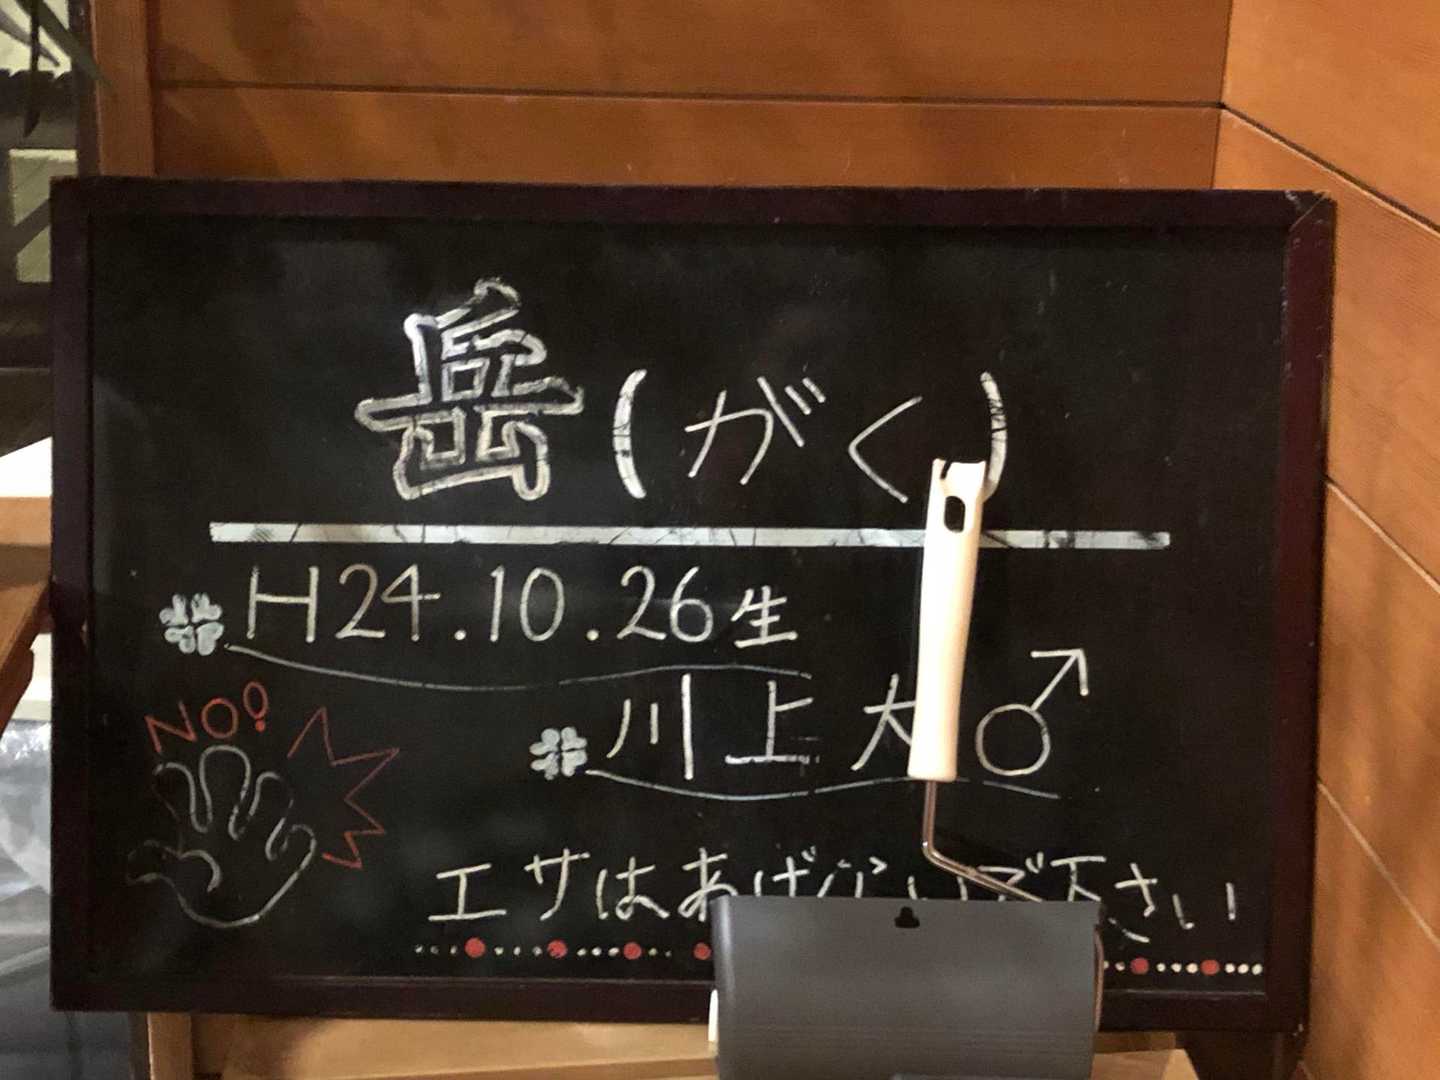 岳(がく)
H24.10.26生
川上犬♂
NO!
エサはあげないで下さい